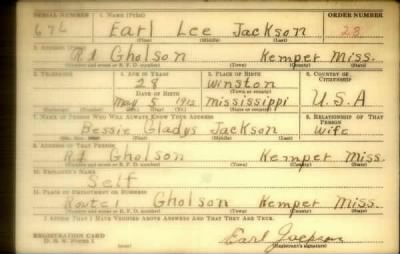 SERIAL NUMBER 1. NAME (Print) ORDER NUMBER
676 Earl Lee Jackson 28
(First) (Middle) (Last)
2. ADDRESS (Print)
Rt Gholson Kemper Miss.
(Number and street or R. F. D. number) (Town) (County) (State)
3. TELEPHONE 4. AGE IN YEARS 5. PLACE OF BIRTH 6. COUNTRY OF CITIZENSHIP
28 Winston
DATE OF BIRTH (Town or county)
May 5 1912 Mississippi U.S.A
(Mo.) (Day) (Yr.) (State or country)
7. NAME OF PERSON WHO WILL ALWAYS KNOW YOUR ADDRESS 8. RELATIONSHIP OF THAT PERSON
Bessie Gladys Jackson Wife
(First) (Middle) (Last)
9. ADDRESS OF THAT PERSON
Rt Gholson Kemper Miss.
(Number and street or R. F. D. number) (Town) (County) (State)
10. EMPLOYER'S NAME
Self
11. PLACE OF EMPLOYMENT OR BUSINESS
Route 1 Gholson Kemper Miss.
(Number and street or R. F. D. number) (Town) (County) (State)
I AFFIRM THAT I HAVE VERIFIED ABOVE ANSWERS AND THAT THEY ARE TRUE.
REGISTRATION CARD
D. S. S. FORM 1 Earl Jackson
(Registrant's signature)